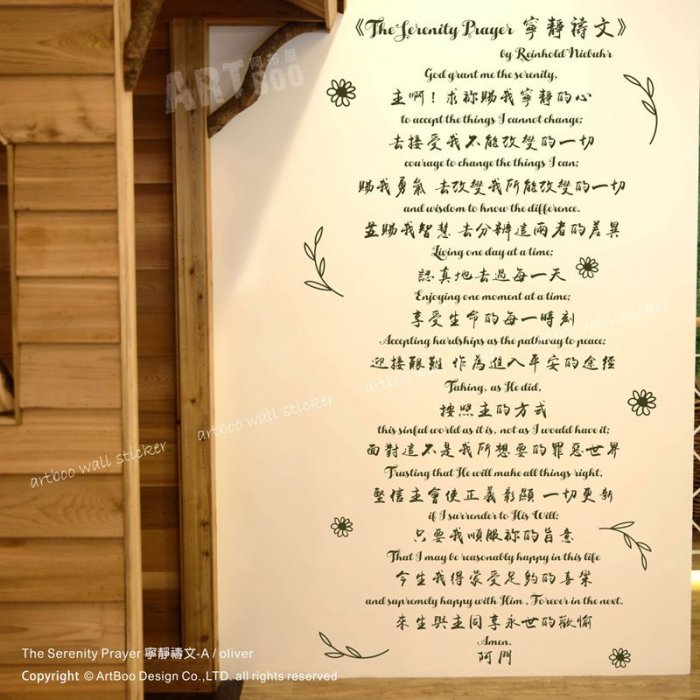 《The Serenity Prayer 寧靜禱文》
by Reinhold Niebuhr
God grant me the serenity,
主啊！求祢賜我寧靜的心
to accept the things I cannot change;
去接受我不能改變的一切
courage to change the things I can;
賜我勇氣 去改變我所能改變的一切
and wisdom to know the difference.
並賜我智慧 去分辨這兩者的差異
Living one day at a time;
認真地去過每一天
Enjoying one moment at a time;
享受生命的每一時刻
Accepting hardships as the pathway to peace;
迎接艱難 作為進入平安的途徑
Taking, as He did,
按照主的方式
this sinful world as it is, not as I would have it;
面對這不是我所想要的罪惡世界
Trusting that He will make all things right,
堅信主會使正義彰顯 一切更新
if I surrender to His Will;
只要我順服祢的旨意
That I may be reasonably happy in this life
今生我得蒙受足夠的喜樂
and supremely happy with Him , Forever in the next.
來生與主同享永世的歡愉
Amen.
阿門
ART BOO 阿布屋
artboo wall sticker
artboo wall sticker
artboo wall sticker
artboo wall sticker
The Serenity Prayer 寧靜禱文-A / oliver
Copyright © ArtBoo Design Co.,LTD. all rights reserved